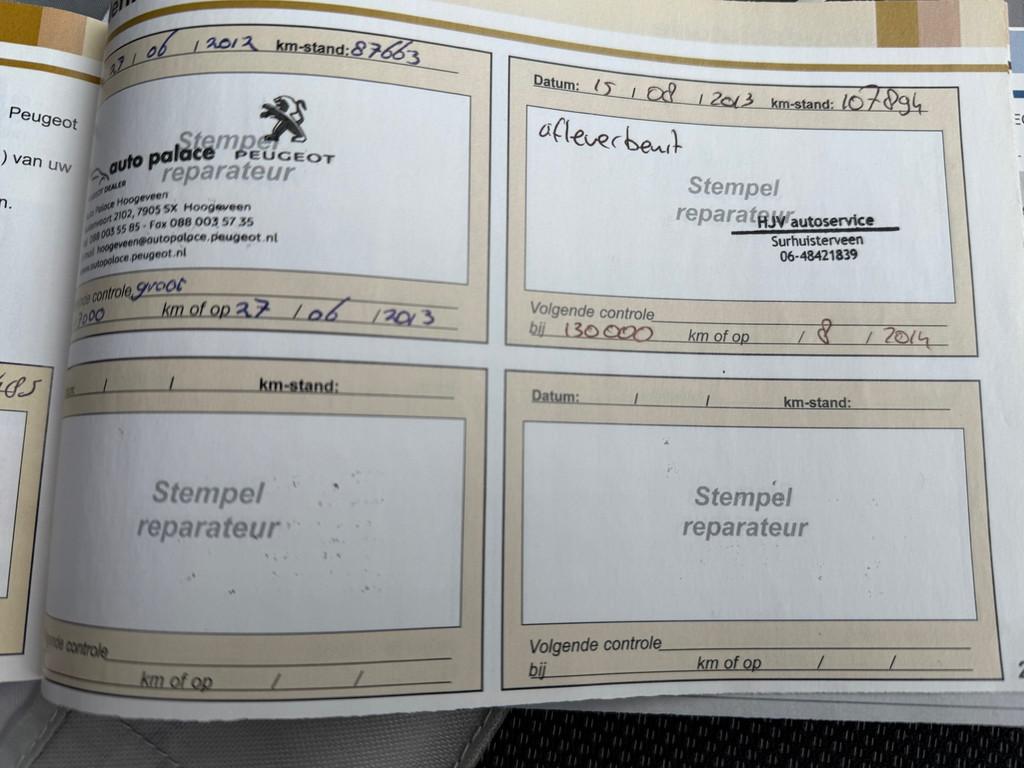 Peugeot
) van uw
n.
485
27 / 06 / 2012 km-stand: 87663
Stempel
reparateur
auto palace PEUGEOT
DEALER
Palace Hoogeveen
2102, 7905 SX Hoogeveen
088 003 55 85 - Fax 088 003 57 35
hoogeveen@autopalace.peugeot.nl
www.autopalace.peugeot.nl
controle groot
km of op 27 / 06 / 2013
Datum: 15 / 08 / 2013 km-stand: 107894
afleverbeurt
Stempel
reparateur
HJV autoservice
Surhuisterveen
06-48421839
Volgende controle
bij 130000 km of op / 8 / 2014
/ / km-stand:
Stempel
reparateur
controle
km of op / /
Datum: / / km-stand:
Stempel
reparateur
Volgende controle
bij km of op / /